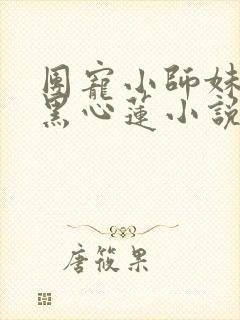 團寵小師妹
黑心蓮小說
唐筱果